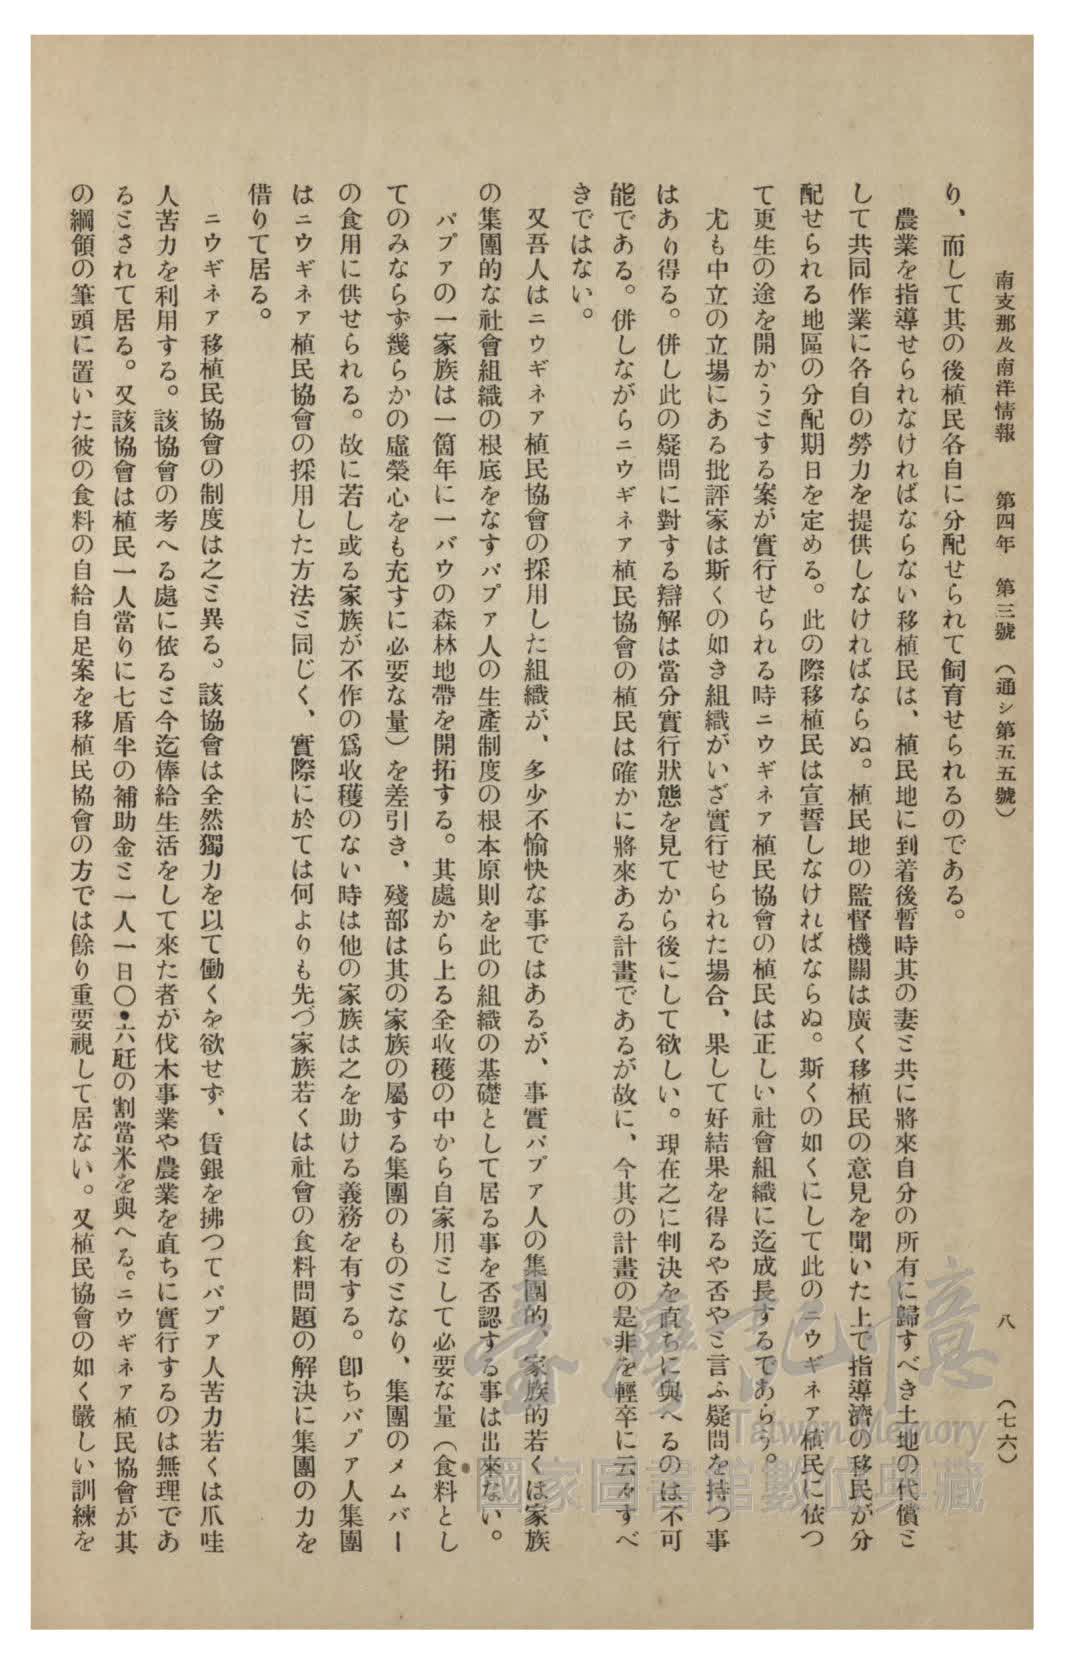 南支那及南洋情報　第四年　第三號　（通シ第五五號）　八　（七六）
り、而して其の後植民各自に分配せられて飼育せられるのである。
農業を指導せられなければならない移植民は、植民地に到着後暫時其の妻と共に將來自分の所有に歸すべき土地の代償と
して共同作業に各自の勞力を提供しなければならぬ。植民地の監督機關は廣く移植民の意見を聞いた上で指導濟の移民が分
配せられる地區の分配期日を定める。此の際移植民は宣誓しなければならぬ。斯くの如くにして此のニウギネア植民に依つ
て更生の途を開かうとする案が實行せられる時ニウギネア植民協會の植民は正しい社會組織に迄成長するであらう。
尤も中立の立場にある批評家は斯くの如き組織がいざ實行せられた場合、果して好結果を得るや否やと言ふ疑問を持つ事
はあり得る。併し此の疑問に對する辯解は當分實行狀態を見てから後にして欲しい。現在之に判決を直ちに與へるのは不可
能である。併しながらニウギネア植民協會の植民は確かに將來ある計畫であるが故に、今其の計畫の是非を輕卒に云々すべ
きではない。
又吾人はニウギネア植民協會の採用した組織が、多少不愉快な事ではあるが、事實パプア人の集團的、家族的若くは家族
の集團的な社會組織の根底をなすパプア人の生產制度の根本原則を此の組織の基礎として居る事を否認する事は出來ない。
パプアの一家族は一箇年に一バウの森林地帶を開拓する。其處から上る全收穫の中から自家用として必要な量（食料とし
てのみならず幾らかの虛榮心をも充すに必要な量）を差引き、殘部は其の家族の屬する集團のものとなり、集團のメムバー
の食用に供せられる。故に若し或る家族が不作の爲收穫のない時は他の家族は之を助ける義務を有する。卽ちパプア人集團
はニウギネア植民協會の採用した方法と同じく、實際に於ては何よりも先づ家族若くは社會の食料問題の解決に集團の力を
借りて居る。
ニウギネア移植民協會の制度は之と異る。該協會は全然獨力を以て働くを欲せず、賃銀を拂つてパプア人苦力若くは爪哇
人苦力を利用する。該協會の考へる處に依ると今迄俸給生活をして來た者が伐木事業や農業を直ちに實行するのは無理であ
るとされて居る。又該協會は植民一人當りに七盾半の補助金と一人一日〇・六瓩の割當米を與へる。ニウギネア植民協會が其
の綱領の筆頭に置いた彼の食料の自給自足案を移植民協會の方では餘り重要視して居ない。又植民協會の如く嚴しい訓練を
臺灣記憶
Taiwan Memory
國家圖書館數位典藏